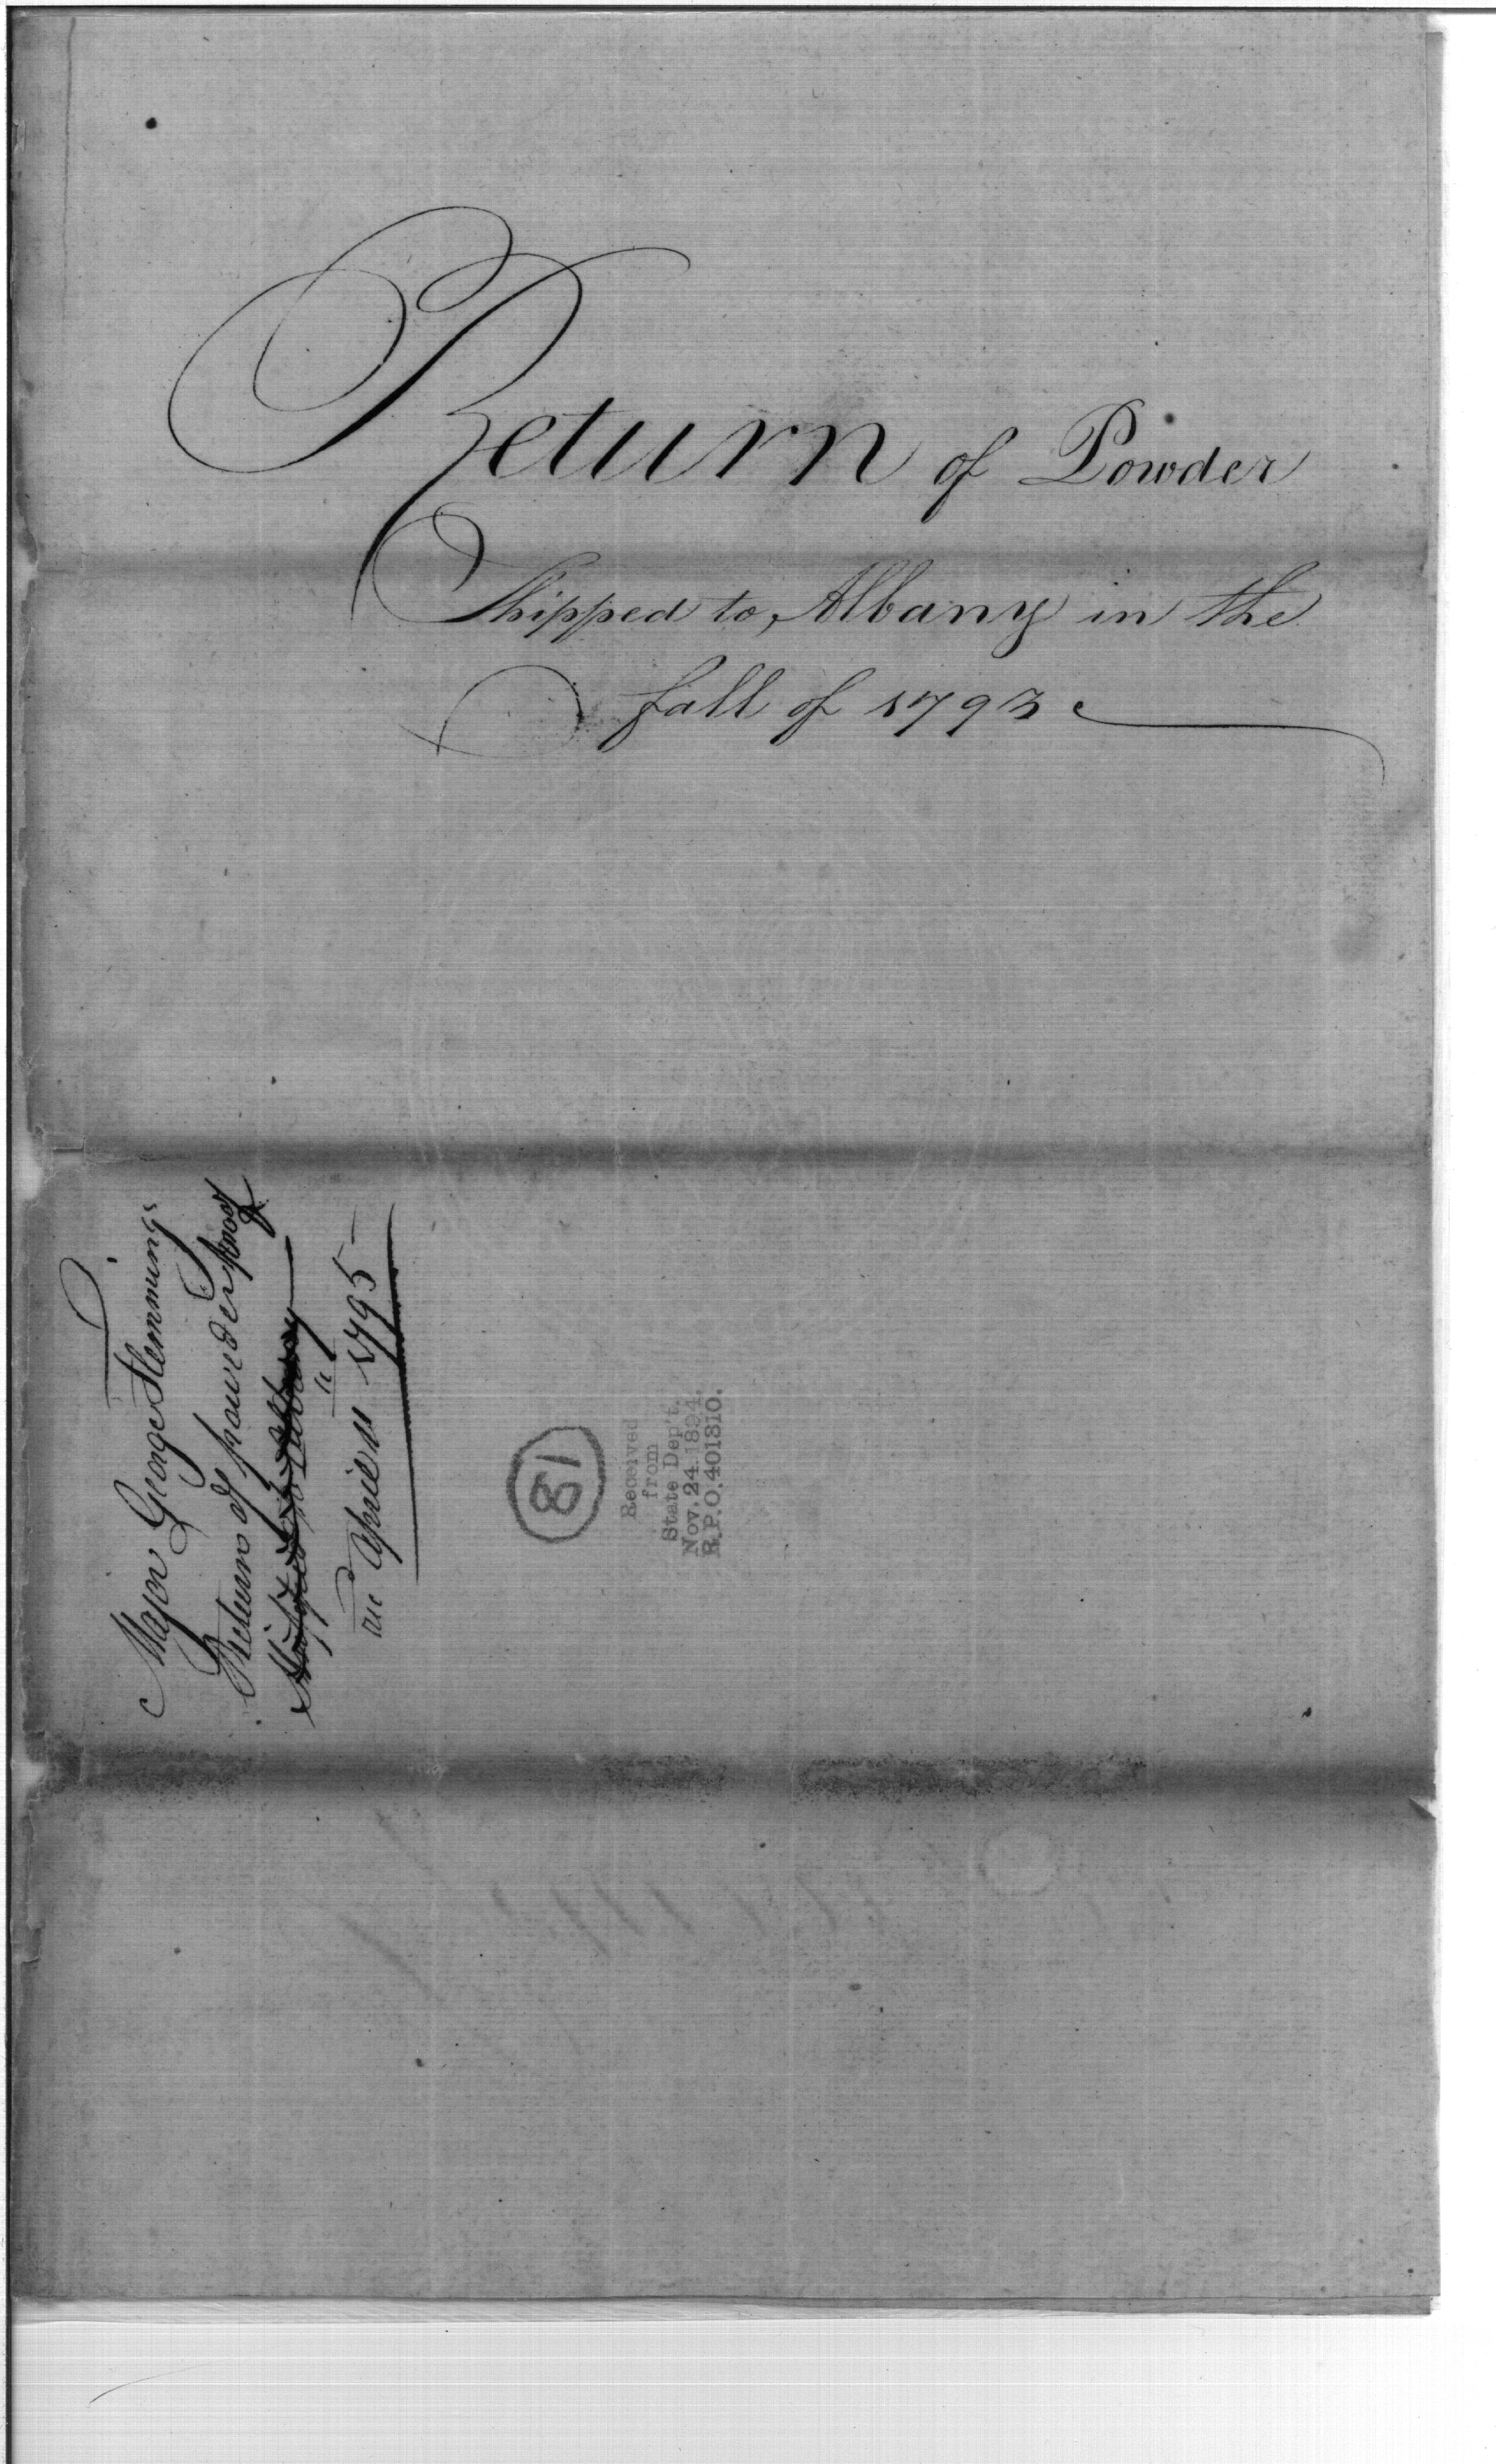 Return of Powder
Shipped to Albany in the
fall of 1793
Major George Flemming's
Return of powder proof
Shipped to Albany
in April 11 1795
81
Received
from
State Dep't.
Nov. 24. 1894.
R.P.O. 401310.